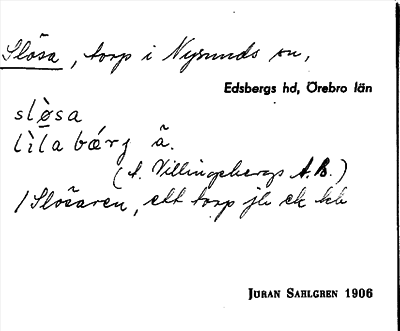 Slösa, torp i Nysunds sn,
Edsbergs hd, Örebro län
slò̤sa
lìla bǽrj ä.
(t. Villingsbergs A.B.)
/Slösaren, ett torp jb ek kb
JÖRAN SAHLGREN 1906